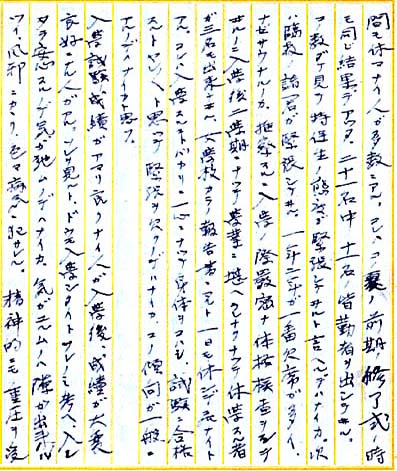 間モ休マナイ人ガ多数ニアル。コレハコノ前期ノ修了式ノ時
モ同ジ結果デアッタ。二十一名中十一名ノ皆勤者ヲ出シテキル。
コノ数デ見テ特待生ノ態度ガ緊張シテヰルト言ヘルデハナイカ。次
ハ隣校ノ諸君ガ緊張シテヰル。一年二年ガ一番欠席ガ多イ。
ナゼサウナルカ。推察スルニ入学ノ際厳密ナ体格検査ヲシテ
ヰルニ入学後二学期ニナッテ学業ニ堪ヘラレナクナッテ休学スル者
ガ三名モ出来キル。女学校カラノ報告書ニモト一日モ休ンデ居ナイト
アル。コレハ入学スルトバカリニ一心ニナッテ身体ヲコハシ、試験ニ合格
スルトヤレヤレト思ッテ緊張ヲ欠クノデハナイカ。コノ傾向ガ一般ニ
アルノデハナイカト思フ。
入学試験ノ成績ガアマリ良クナイ人ガ入学後ノ成績ガ大変
良好ナル人ガアル。ソレヲ見ルト、ドウモ入学シタイトソレノミ考ヘ、入ル
ト安心スルノデ気ガ弛ムノデハナイカ。気ガユルムノハ隙ガ出来ル
ツイ風邪ニカカリ、色々病気ニ犯サレル。精神的ニモ重圧ヲ受